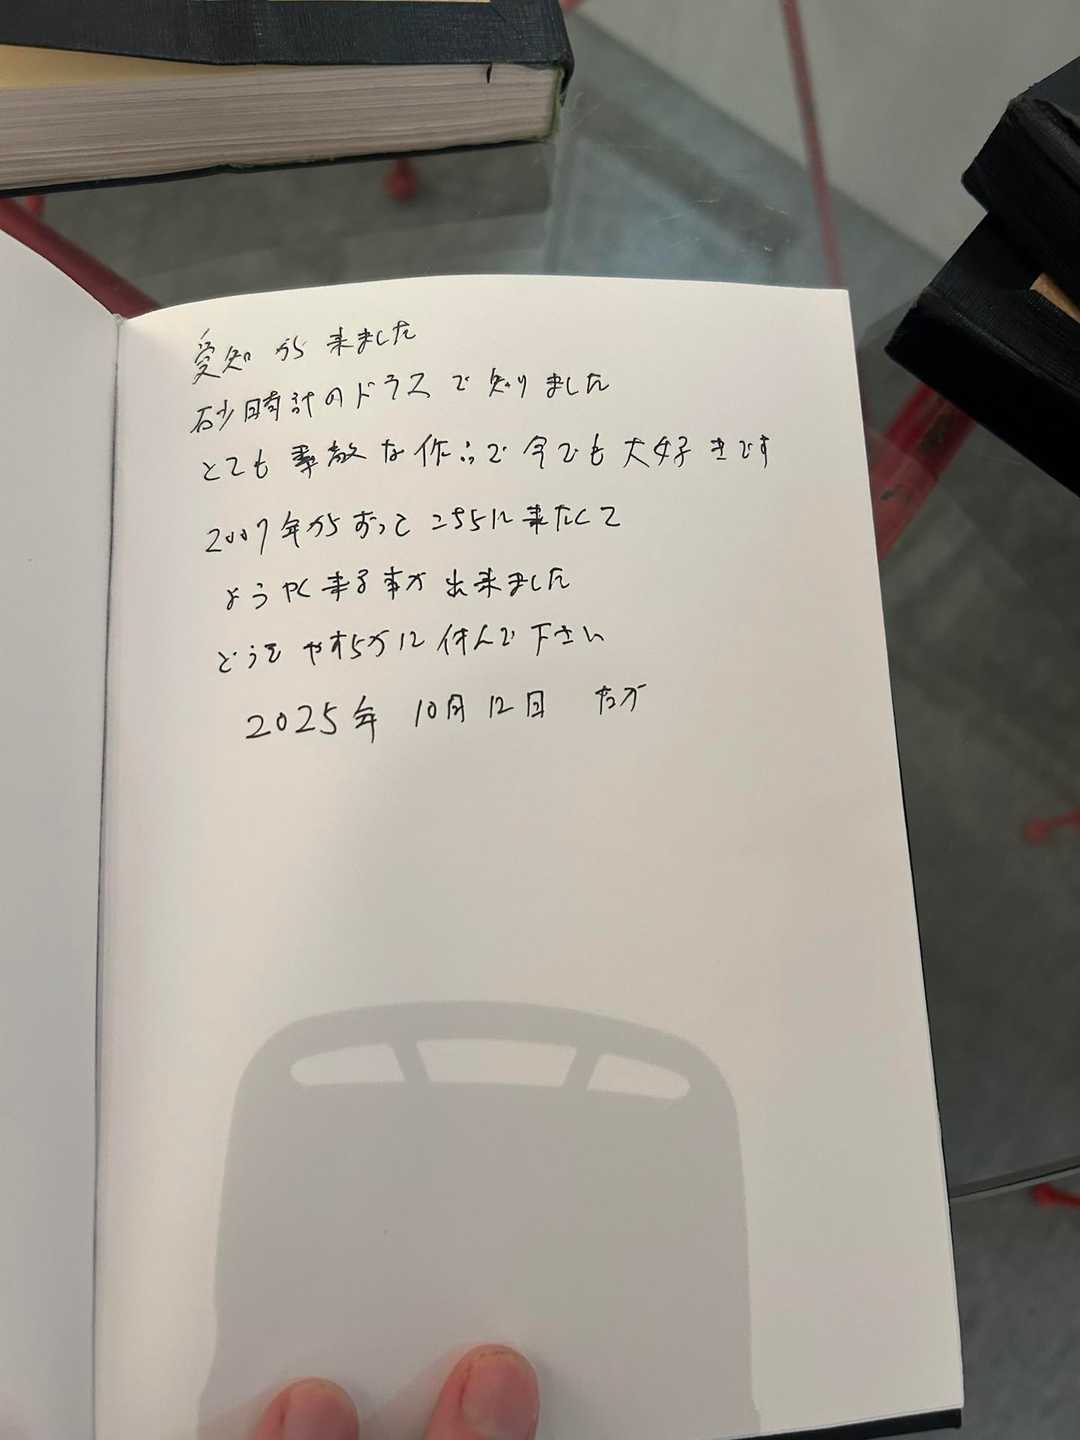 愛知から来ました
砂時計のドラマで知りました
とても素敵な作品で今でも大好きです
2007年からずっとこちらに来たくて
ようやく来る事が出来ました
どうぞ安らかに休んで下さい
2025年 10月12日